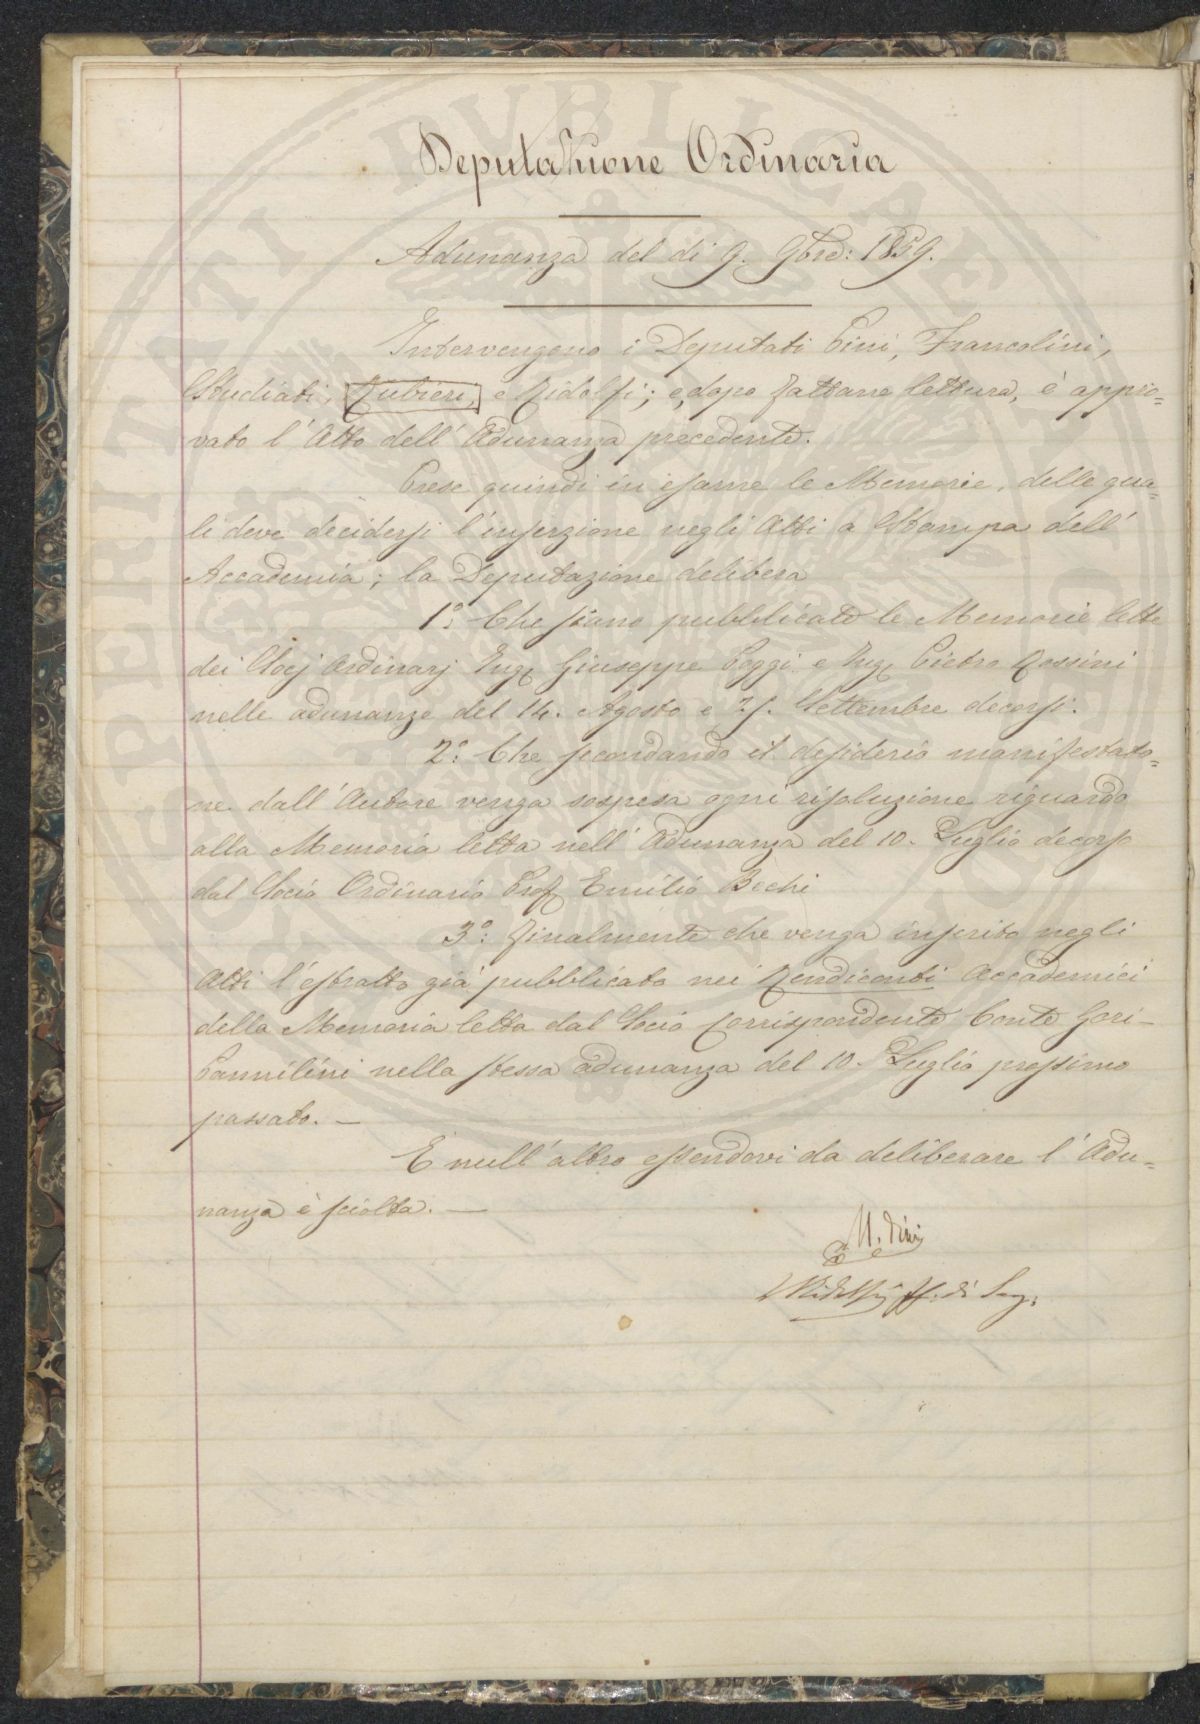 Deputazione Ordinaria
Adunanza del di 9. 9bre: 1859.
Intervengono i Deputati Pini, Francolini,
Studiati, Rubieri, e Ridolfi; e, dopo fattane lettura, è appro=
vato l'Atto dell'Adunanza precedente.
Prese quindi in esame le Memorie, delle qua=
li deve decidersi l'inserzione negli Atti a Stampa dell'
Accademia; la Deputazione delibera
1.° Che siano pubblicate le Memorie lette
dei Socj Ordinarj Ing. Giuseppe Poggi e Ing. Pietro Rossini
nelle adunanze del 14. Agosto e Settembre decorsi.
2.° Che secondando il desiderio manifestato=
ne dall'Autore venga sospesa ogni risoluzione riguardo
alla Memoria letta nell'Adunanza del 10. Luglio decorso
dal Socio Ordinario Prof. Emilio Bechi
3.° Finalmente che venga inserito negli
Atti l'estratto già pubblicato nei Rendiconti Accademici
della Memoria letta dal Socio Corrispondente Conte Gori-
Pannilini nella stessa adunanza del 10. Luglio prossimo
passato. —
E null'altro essendovi da deliberare l'Adu=
nanza è sciolta. —
Ridolfi ff. di Seg.
PVBLICAE
SPERITATI